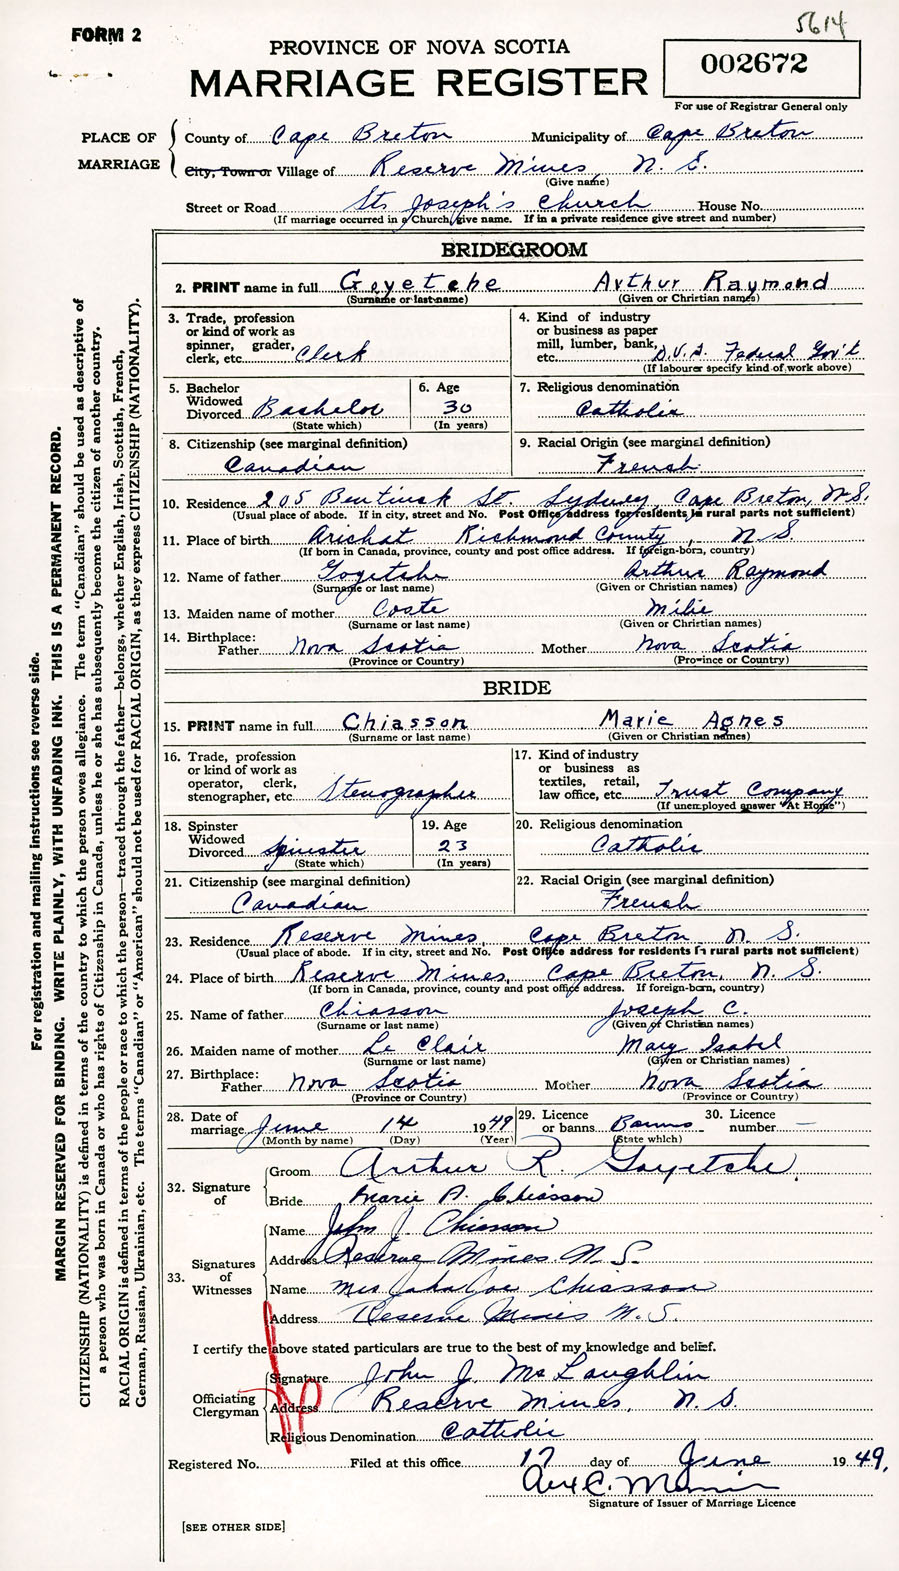 5614
FORM 2
PROVINCE OF NOVA SCOTIA
MARRIAGE REGISTER
002672
For use of Registrar General only
PLACE OF MARRIAGE
County of Cape Breton Municipality of Cape Breton
City, Town or Village of Reserve Mines, N. S.
(Give name)
Street or Road St. Joseph's Church House No.
(If marriage occurred in a Church, give name. If in a private residence give street and number)
BRIDEGROOM
2. PRINT name in full Goyetche Arthur Raymond
(Surname or last name) (Given or Christian names)
3. Trade, profession or kind of work as spinner, grader, clerk, etc. Clerk
4. Kind of industry or business as paper mill, lumber, bank, etc. D.V.A. Federal Gov't
(If labourer specify kind of work above)
5. Bachelor Widowed Divorced Bachelor
(State which)
6. Age 30
(In years)
7. Religious denomination Catholic
8. Citizenship (see marginal definition) Canadian
9. Racial Origin (see marginal definition) French
10. Residence 205 Bentinck St. Sydney, Cape Breton, N.S.
(Usual place of abode. If in city, street and No. Post Office address for residents in rural parts not sufficient)
11. Place of birth Arichat Richmond County, N. S.
(If born in Canada, province, county and post office address. If foreign-born, country)
12. Name of father Goyetche Arthur Raymond
(Surname or last name) (Given or Christian names)
13. Maiden name of mother Coste Milie
(Surname or last name) (Given or Christian names)
14. Birthplace: Father Nova Scotia Mother Nova Scotia
(Province or Country) (Province or Country)
BRIDE
15. PRINT name in full Chiasson Marie Agnes
(Surname or last name) (Given or Christian names)
16. Trade, profession or kind of work as operator, clerk, stenographer, etc. Stenographer
17. Kind of industry or business as textiles, retail, law office, etc. Trust Company
(If unemployed answer "At Home")
18. Spinster Widowed Divorced Spinster
(State which)
19. Age 23
(In years)
20. Religious denomination Catholic
21. Citizenship (see marginal definition) Canadian
22. Racial Origin (see marginal definition) French
23. Residence Reserve Mines, Cape Breton N. S.
(Usual place of abode. If in city, street and No. Post Office address for residents in rural parts not sufficient)
24. Place of birth Reserve Mines, Cape Breton, N. S.
(If born in Canada, province, county and post office address. If foreign-born, country)
25. Name of father Chiasson Joseph C.
(Surname or last name) (Given or Christian names)
26. Maiden name of mother Le Clair Mary Isabel
(Surname or last name) (Given or Christian names)
27. Birthplace: Father Nova Scotia Mother Nova Scotia
(Province or Country) (Province or Country)
28. Date of marriage June 14 1949
(Month by name) (Day) (Year)
29. Licence or banns Banns
(State which)
30. Licence number –
32. Signature of
Groom Arthur R. Goyetche
Bride Marie A. Chiasson
33. Signatures of Witnesses
Name John J. Chiasson
Address Reserve Mines N. S.
Name Mrs John Joe Chiasson
Address Reserve Mines N. S.
I certify the above stated particulars are true to the best of my knowledge and belief.
Officiating Clergyman
Signature John J. McLaughlin
Address Reserve Mines, N. S.
Religious Denomination Catholic
Registered No. Filed at this office 17 day of June 1949.
Signature of Issuer of Marriage Licence
[SEE OTHER SIDE]
For registration and mailing instructions see reverse side.
MARGIN RESERVED FOR BINDING. WRITE PLAINLY, WITH UNFADING INK. THIS IS A PERMANENT RECORD.
CITIZENSHIP (NATIONALITY) is defined in terms of the country to which the person owes allegiance. The term "Canadian" should be used as descriptive of
a person who was born in Canada or who has rights of Citizenship in Canada, unless he or she has subsequently become the citizen of another country.
RACIAL ORIGIN is defined in terms of the people or race to which the person—traced through the father—belongs, whether English, Irish, Scottish, French,
German, Russian, Ukrainian, etc. The terms "Canadian" or "American" should not be used for RACIAL ORIGIN, as they express CITIZENSHIP (NATIONALITY).